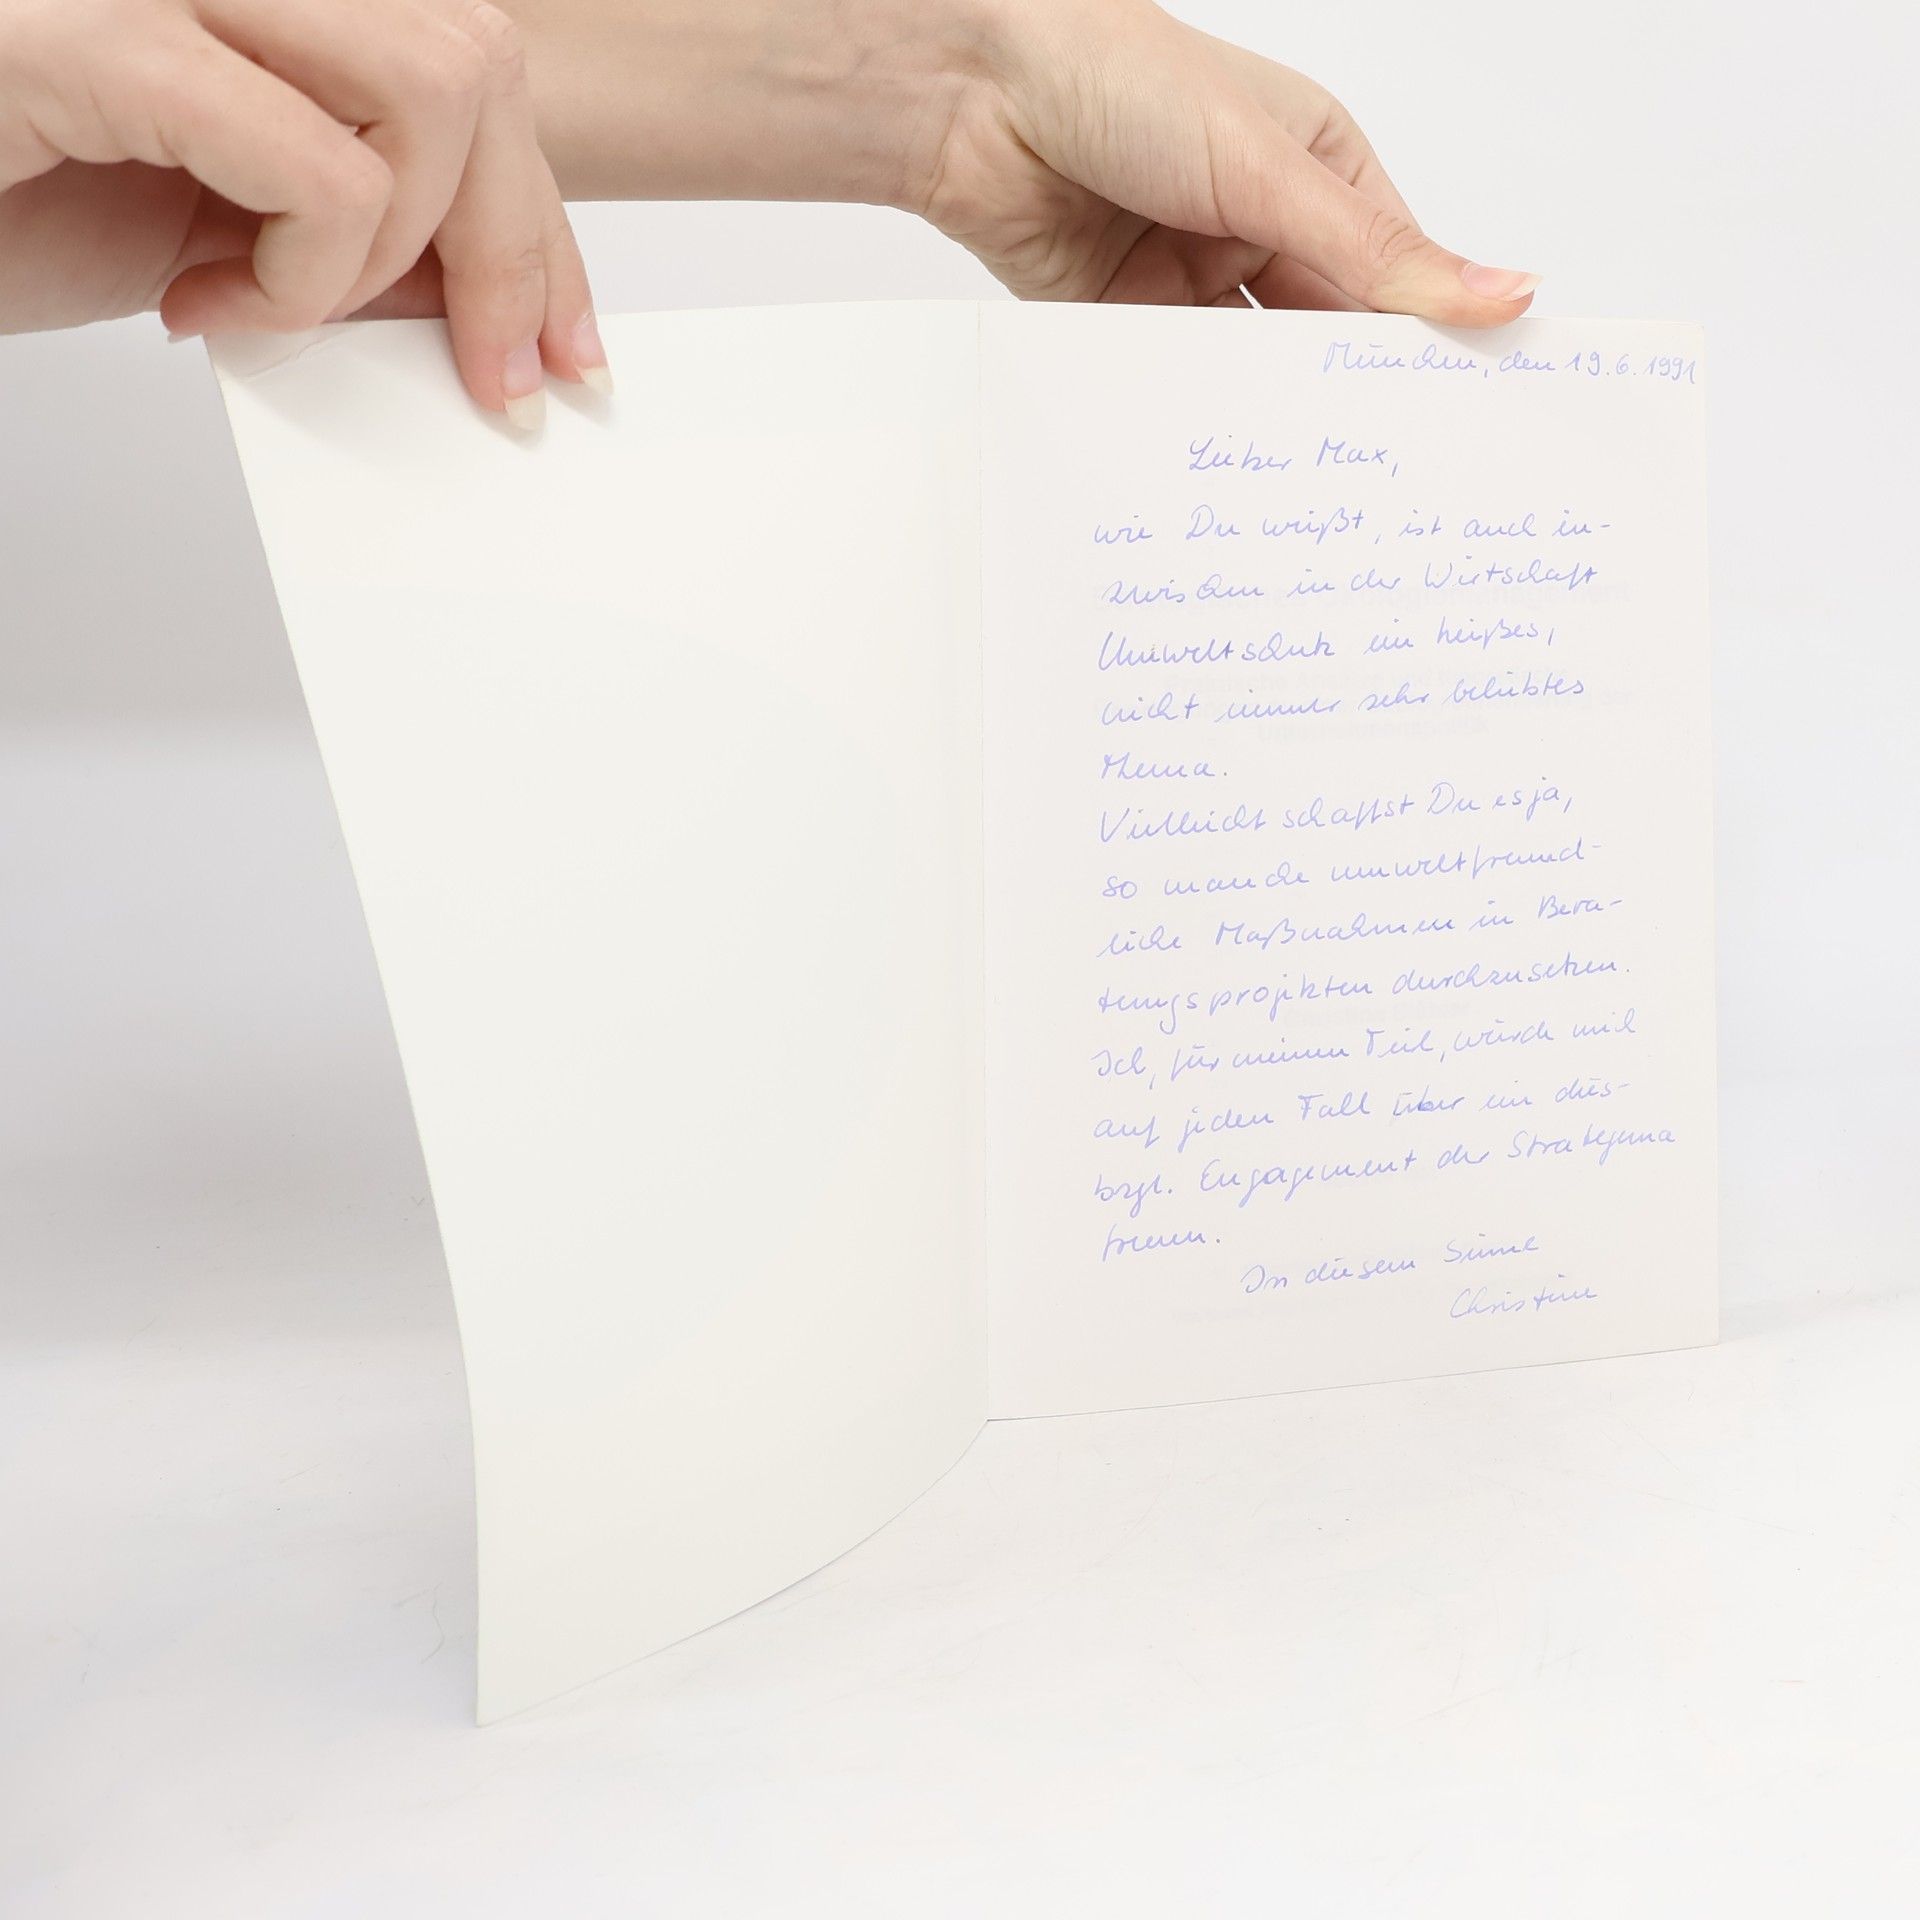 München, den 19.6.1991
Lieber Max,
wie Du weißt, ist auch in-
zwischen in der Wirtschaft
Umweltschutz ein heißes,
nicht immer sehr beliebtes
Thema.
Vielleicht schaffst Du es ja,
so manche umweltfreund-
liche Maßnahmen in Bera-
tungsprojekten durchzusetzen.
Ich, für meinen Teil, würde mich
auf jeden Fall über ein dies-
bzgl. Engagement der Strategma
freuen.
In diesem Sinne
Christine